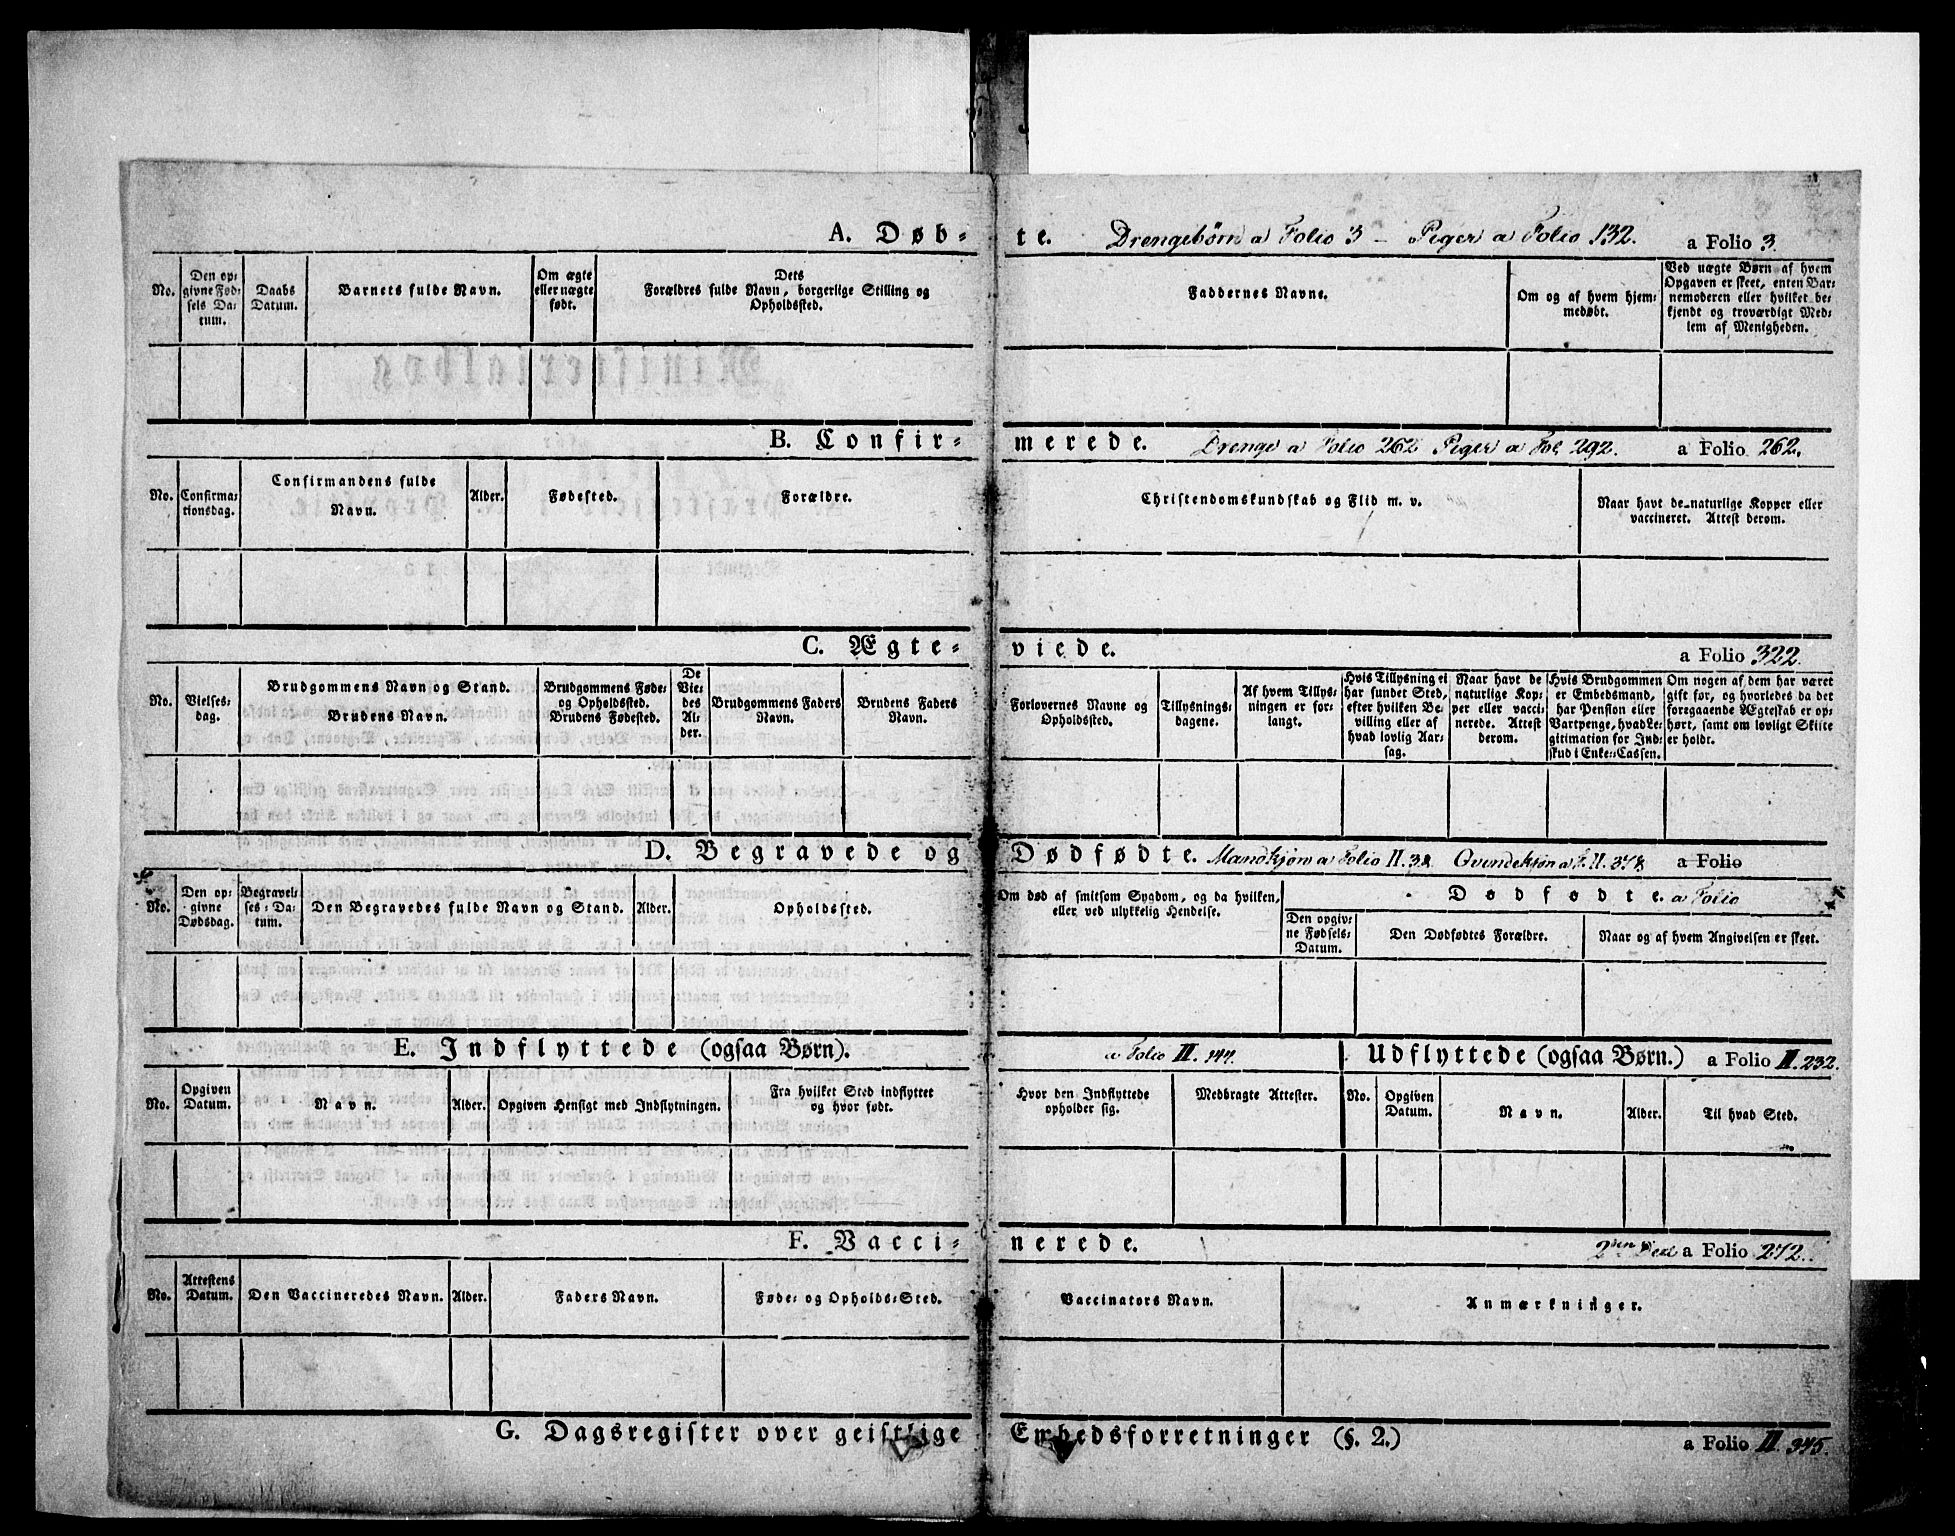 A. Døbte. Drengebørn a Folio 3 – Piger a Folio 132. a Folio 3.
No.
Den op-
givne Fød-
sels Da-
tum.
Daabs
Datum.
Barnets fulde Navn.
Om ægte
eller uægte
født.
Dets
Forældres fulde Navn, borgerlige Stilling og
Opholdssted.
Faddernes Navne.
Om og af hvem hjem-
medøbt.
Ved uægte Børn af hvem
Opgaven er skeet, enten Bar-
nemoderen eller hvilket be-
kjendt og troværdigt Med-
lem af Menigheden.
B. Confirmerede. Drenge a Folio 262 Piger a Fol 292. a Folio 262.
No.
Confirma-
tionsdag.
Confirmandens fulde
Navn.
Alder.
Fødested.
Forældre.
Christendomskundskab og Flid m. v.
Naar havt de naturlige Kopper eller
vaccineret. Attest derom.
C. Ægteviede. a Folio 322.
No.
Vielses-
dag.
Brudgommens Navn og Stand.
Brudens Navn.
Brudgommens Føde-
og Opholdssted.
Brudens Fødested.
De
Vie-
des
Al-
der.
Brudgommens Faders
Navn.
Brudens Faders
Navn.
Forlovernes Navne og
Opholdssted.
Tillysnings-
dagene.
Af hvem Tillys-
ningen er for-
langt.
Hvis Tillysning ei
har fundet Sted,
efter hvilken Be-
villing eller af
hvad lovlig Aar-
sag.
Naar havt de
naturlige Kop-
per eller vacci-
nerede. Attest
derom.
Hvis Brudgommen
er Embedsmand,
har Pension eller
Vartpenge, hvad Le-
gitimation for Ind-
skud i Enke-Cassen.
Om nogen af dem har været
gift før, og hvorledes da det
foregaaende Ægteskab er op-
hørt, samt om lovligt Skifte
er holdt.
D. Begravede og Dødfødte. Mandkjøn a Folio II. Qvindekjøn a F. II. a Folio
No.
Den op-
givne
Dødsdag.
Begravel-
ses-Da-
tum.
Den Begravedes fulde Navn og Stand.
Alder.
Opholdssted.
Om død af smitsom Sygdom, og da hvilken,
eller ved ulykkelig Hendelse.
Dødfødte. a Folio
Den opgiv-
ne Fødsels-
Datum.
Den Dødfødtes Forældre.
Naar og af hvem Angivelsen er skeet.
E. Indflyttede (ogsaa Børn). a Folio II. 144. Udflyttede (ogsaa Børn.) a Folio II. 232.
No.
Opgiven
Datum.
Navn.
Alder.
Opgiven Hensigt med Indflytningen.
Fra hvilket Sted indflyttet
og hvor født.
Hvor den Indflyttede
opholder sig.
Medbragte Attester.
No.
Opgiven
Datum.
Navn.
Alder.
Til hvad Sted.
F. Vaccinerede. a Folio 272.
No.
Attestens
Datum.
Den Vaccineredes Navn.
Alder.
Faders Navn.
Føde- og Opholds-Sted.
Vaccinators Navn.
Anmærkninger.
G. Dagsregister over geistlige Embedsforretninger (§. 2.) a Folio II. 345.